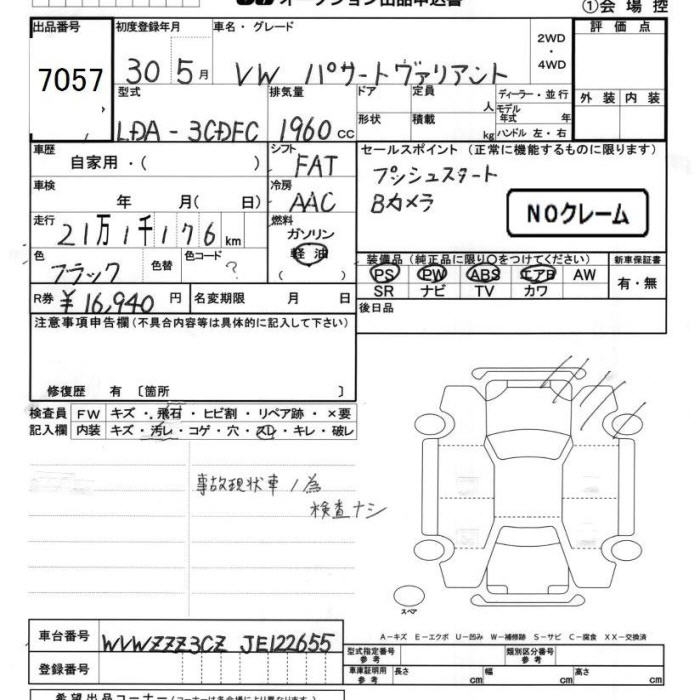 オークション出品申込書
①会場控
出品番号 初度登録年月 車名・グレード 2WD ・ 4WD 評価点
7057 30 5月 VW パサートヴァリアント
型式 排気量 ドア 定員 人 ディーラー・並行 外装 内装
LDA-3CDFC 1960cc 形状 積載 kg モデル年式 年
ハンドル 左・右
車歴 シフト セールスポイント(正常に機能するものに限ります)
自家用・( ) FAT プッシュスタート
車検 冷房 Bカメラ
年 月( 日) AAC NOクレーム
走行 燃料
21万1千176km ガソリン
色 色替 色コード 軽油 装備品(純正品に限り○をつけてください) 新車保証書
ブラック ? ( ) PS PW ABS エアB AW 有・無
SR ナビ TV カワ
R券 ¥16,940円 名変期限 月 日 後日品
注意事項申告欄(不具合内容等は具体的に記入して下さい)
修復歴 有 〔箇所 〕
検査員 FW キズ・飛石・ヒビ割・リペア跡・×要
記入欄 内装 キズ・汚レ・コゲ・穴・スレ・キレ・破レ
事故現状車ノ為
検査ナシ
スペア
A-キズ E-エクボ U-凹み W-補修跡 S-サビ C-腐食 XX-交換済
車台番号 WVWZZZ3CZ JE122655 型式指定番号 参考 類別区分番号 参考
登録番号 車庫証明用 参考 長さ cm 幅 cm 高さ cm
希望出品コーナー(コーナーは各会場により異なります)